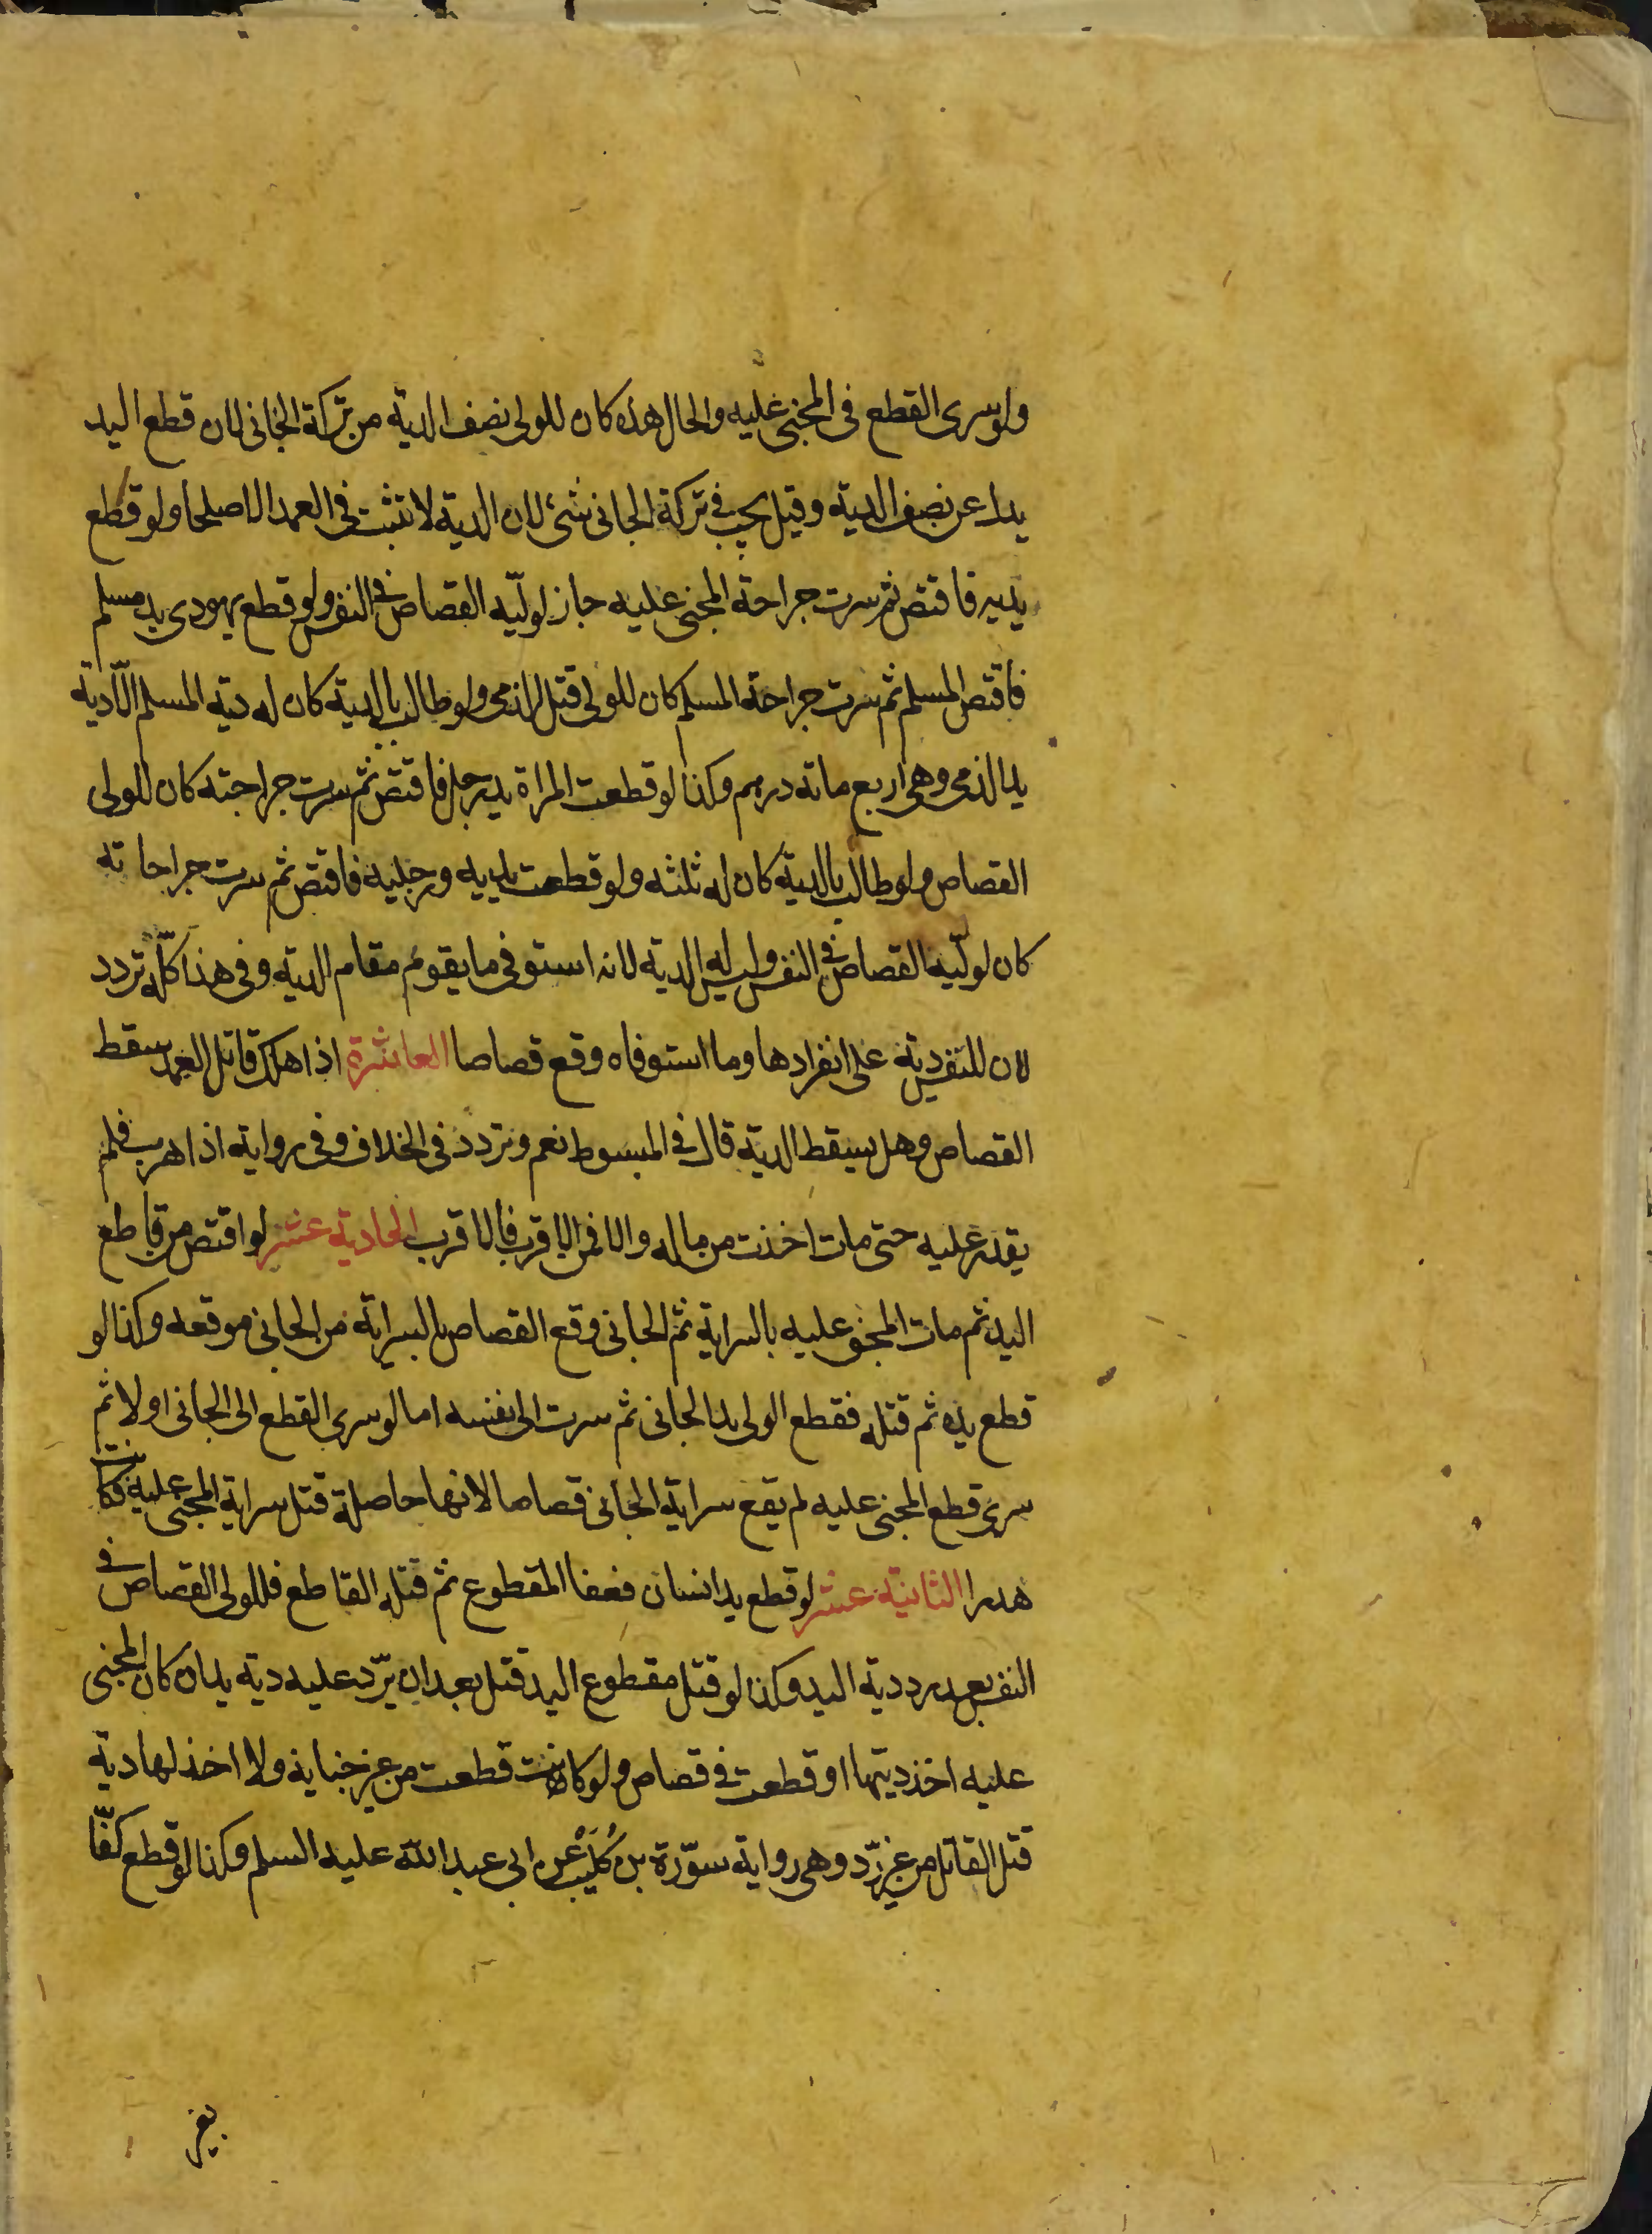 ولو سرى القطع فى المجنى عليه والحال هذه كان للولى نصف الدية من تركة الجانى لان قطع اليد
بدل عن نصف الدية وقيل يجب فى تركة الجانى شئ لان الدية لا تثبت فى العمد الا صلحا ولو قطع
يديه فاقتص ثم سرت جراحة المجنى عليه جاز لوليّه القصاص فى النفس ولو قطع يهودى يد مسلم
فاقتص المسلم ثم سرت جراحة المسلم كان للولى قتل الذمى ولو طالب بالدية كان له دية المسلم الّا دية
يد الذمى وهى اربع مائة درهم وكذا لو قطعت المراة يد رجل فاقتص ثم سرت جراحته كان للولى
القصاص ولو طالب بالدية كان له ثلثه ولو قطعت يديه ورجليه فاقتص ثم سرت جراحاته
كان لوليّه القصاص فى النفس وليس له الدية لانه استوفى ما يقوم مقام الدية وفى هذا كلّه تردد
لان للنفس دية على انفرادها وما استوفاه وقع قصاصا العاشرة اذا هلك قاتل العمد سقط
القصاص وهل يسقط الدية قال فى المبسوط نعم وتردد فى الخلاف وفى رواية اذا هرب فلم
يقدر عليه حتى مات اخذت من ماله والا فمن الاقرب فالاقرب الحادية عشر لو اقتص من قاطع
اليد ثم مات المجنى عليه بالسراية ثم الجانى وقع القصاص بالسراية من الجانى موقعه وكذا لو
قطع يده ثم قتله فقطع الولى يد الجانى ثم سرت الى نفسه اما لو سرى القطع الى الجانى اولا ثم
سرى قطع المجنى عليه لم يقع سراية الجانى قصاصا لانها حاصلة قبل سراية المجنى عليه فكانت
هدرا الثانية عشر لو قطع يد انسان فعفا المقطوع ثم قتله القاطع فللولى القصاص فى
النفس بعد رد دية اليد وكذا لو قتل مقطوع اليد قتل بعد ان يرّد عليه دية يد ان كان المجنى
عليه اخذ ديتها او قطعت فى قصاص ولو كانت قطعت من غير جناية ولا اخذ لها دية
قتل القاتل من غير ردّ وهى رواية سوّرة بن كُلَيْب عن ابى عبد الله عليه السلم وكذا لو قطع كفّا
بغير